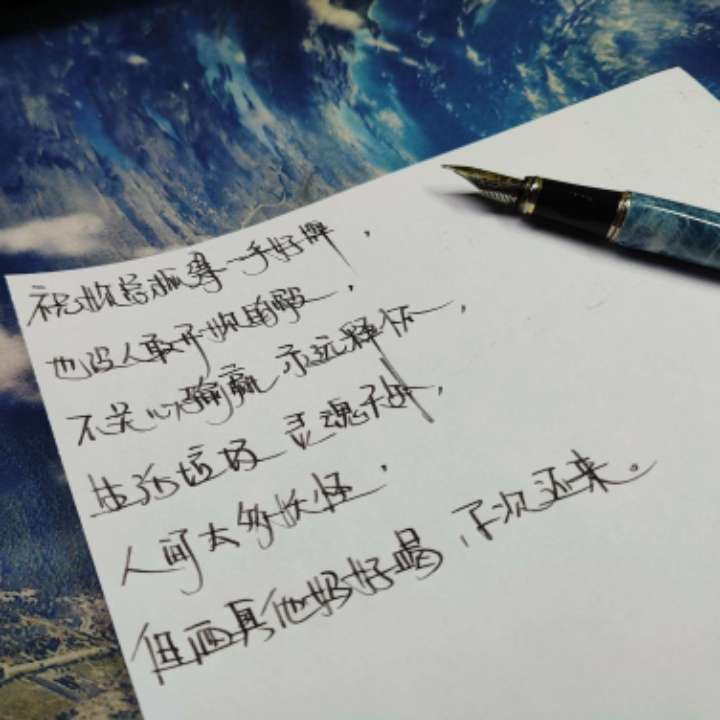 祝你一手好牌，
也没人敢开你
不关心输赢 永远释怀，
生活垃圾 灵魂
人间太多妖怪，
但酒真他妈好喝，下次还来。